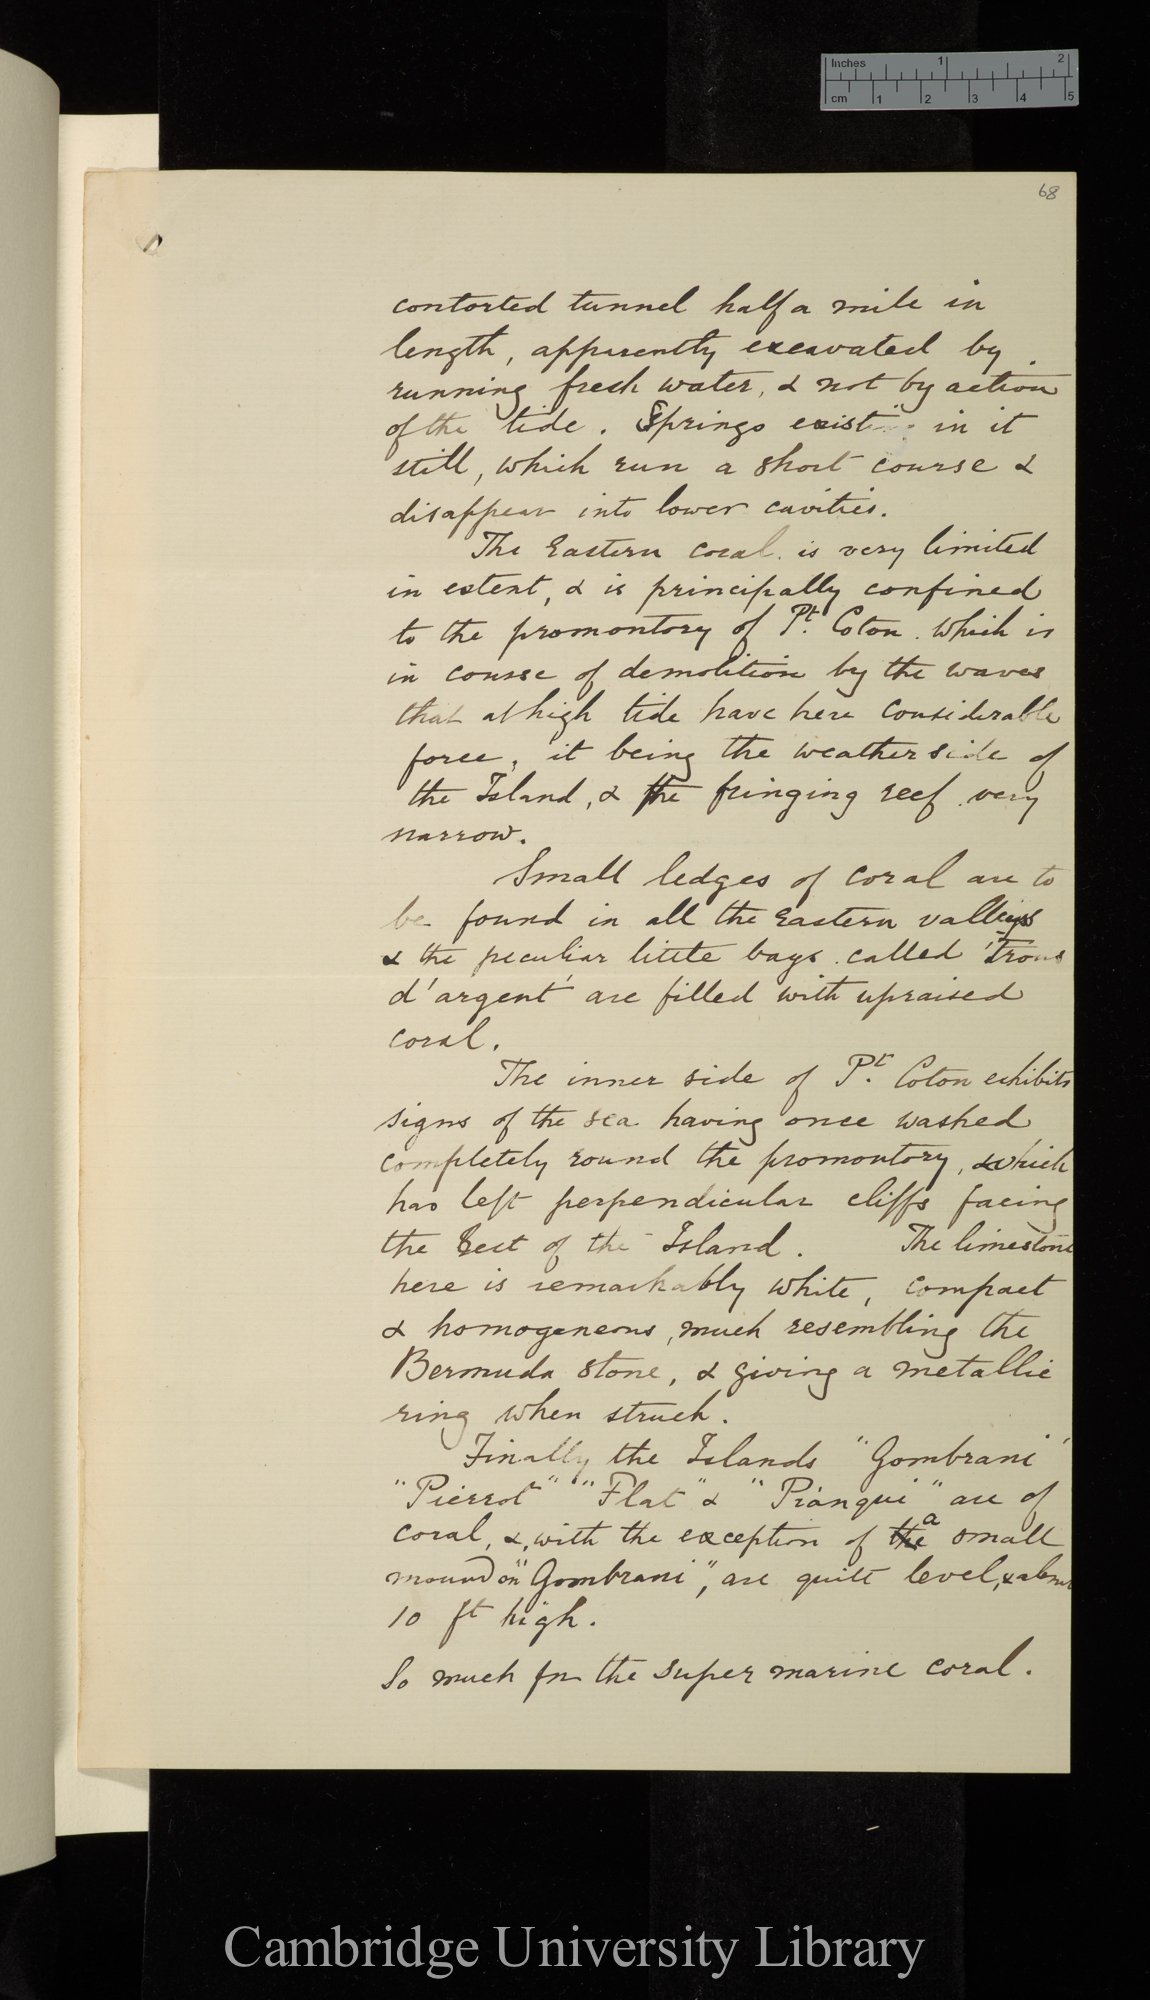 Inches 1 2
cm 1 2 3 4 5
68
contorted tunnel half a mile in
length, apparently excavated by
running fresh water, & not by action
of the tide. Springs exist in it
still, which run a short course &
disappear into lower cavities.
The Eastern coral is very limited
in extent, & is principally confined
to the promontory of Pt. Coton which is
in course of demolition by the waves
that at high tide have here considerable
force, it being the weather side of
the Island, & the fringing reef very
narrow.
Small ledges of coral are to
be found in all the Eastern valleys
& the peculiar little bays called 'Trous
d'argent' are filled with upraised
coral.
The inner side of Pt. Coton exhibits
signs of the sea having once washed
completely round the promontory, & which
has left perpendicular cliffs facing
the rest of the Island. The limestone
here is remarkably white, compact
& homogeneous, much resembling the
Bermuda stone, & giving a metallic
ring when struck.
Finally the Islands "Gombrani"
"Pierrot" "Flat" & "Pianqui" are of
coral, &, with the exception of the a small
mound on "Gombrani", are quite level, & about
10 ft high.
So much for the super marine coral.
Cambridge University Library